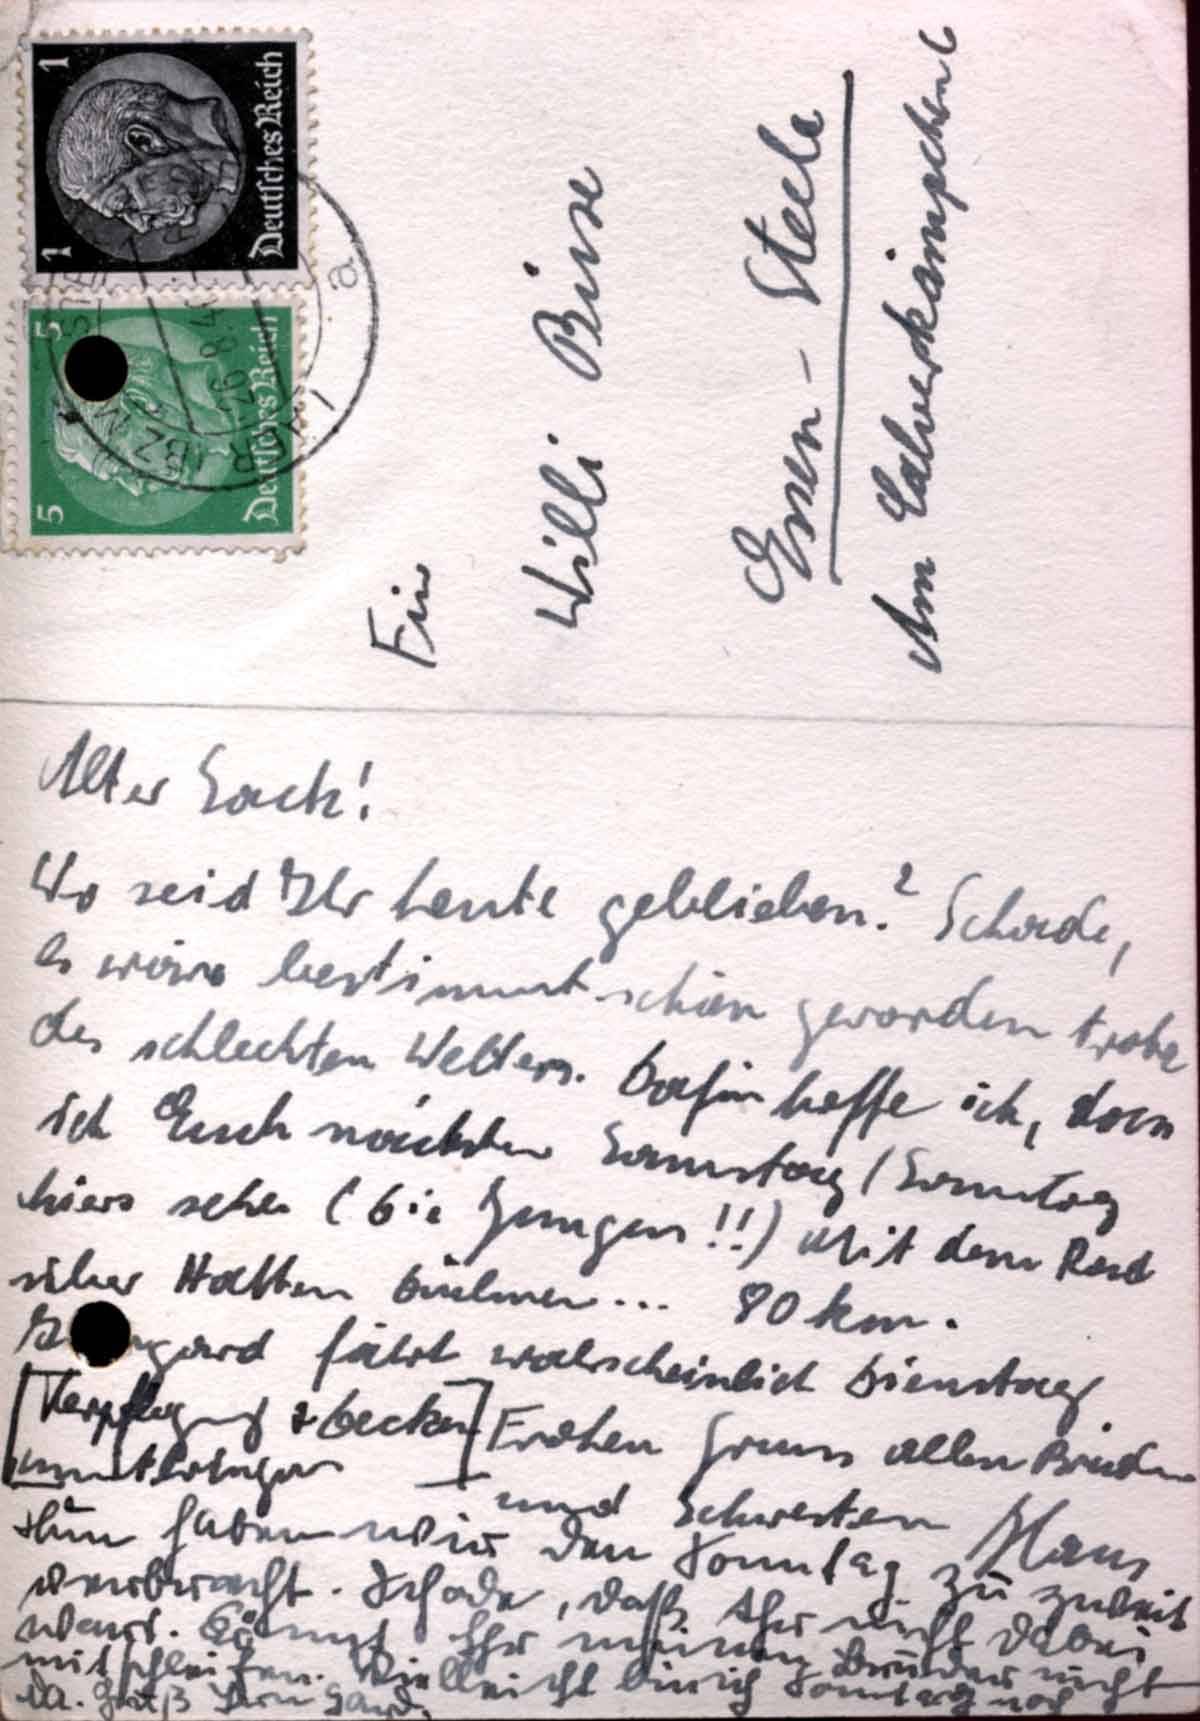 1 1
Deutsches Reich
5 5
Deutsches Reich
8.40
a
Für
Willi Buse
Essen - Steele
Am
Alter Sack!
Wo seid Ihr heute geblieben? Schade,
es wäre bestimmt schön geworden trotz
des schlechten Wetters. Dafür hoffe ich, dass
ich Euch nächsten Samstag/Sonntag
hier sehe (Die Jungen!!) Mit dem Rad
über Haltern Dülmen... 80 km.
fährt wahrscheinlich Dienstag
[Verpflegung & Decken
mitbringen]
Frohen Gruss allen Brüdern
und Schwestern Hans
Nun haben wir den Sonntag zu zweit
verbracht. Schade, daß Ihr nicht dabei
wart. Könnt Ihr meinen Bruder nicht
mitschleifen. Vielleicht bin ich Sonntag noch
da. Gruß Irmgard.